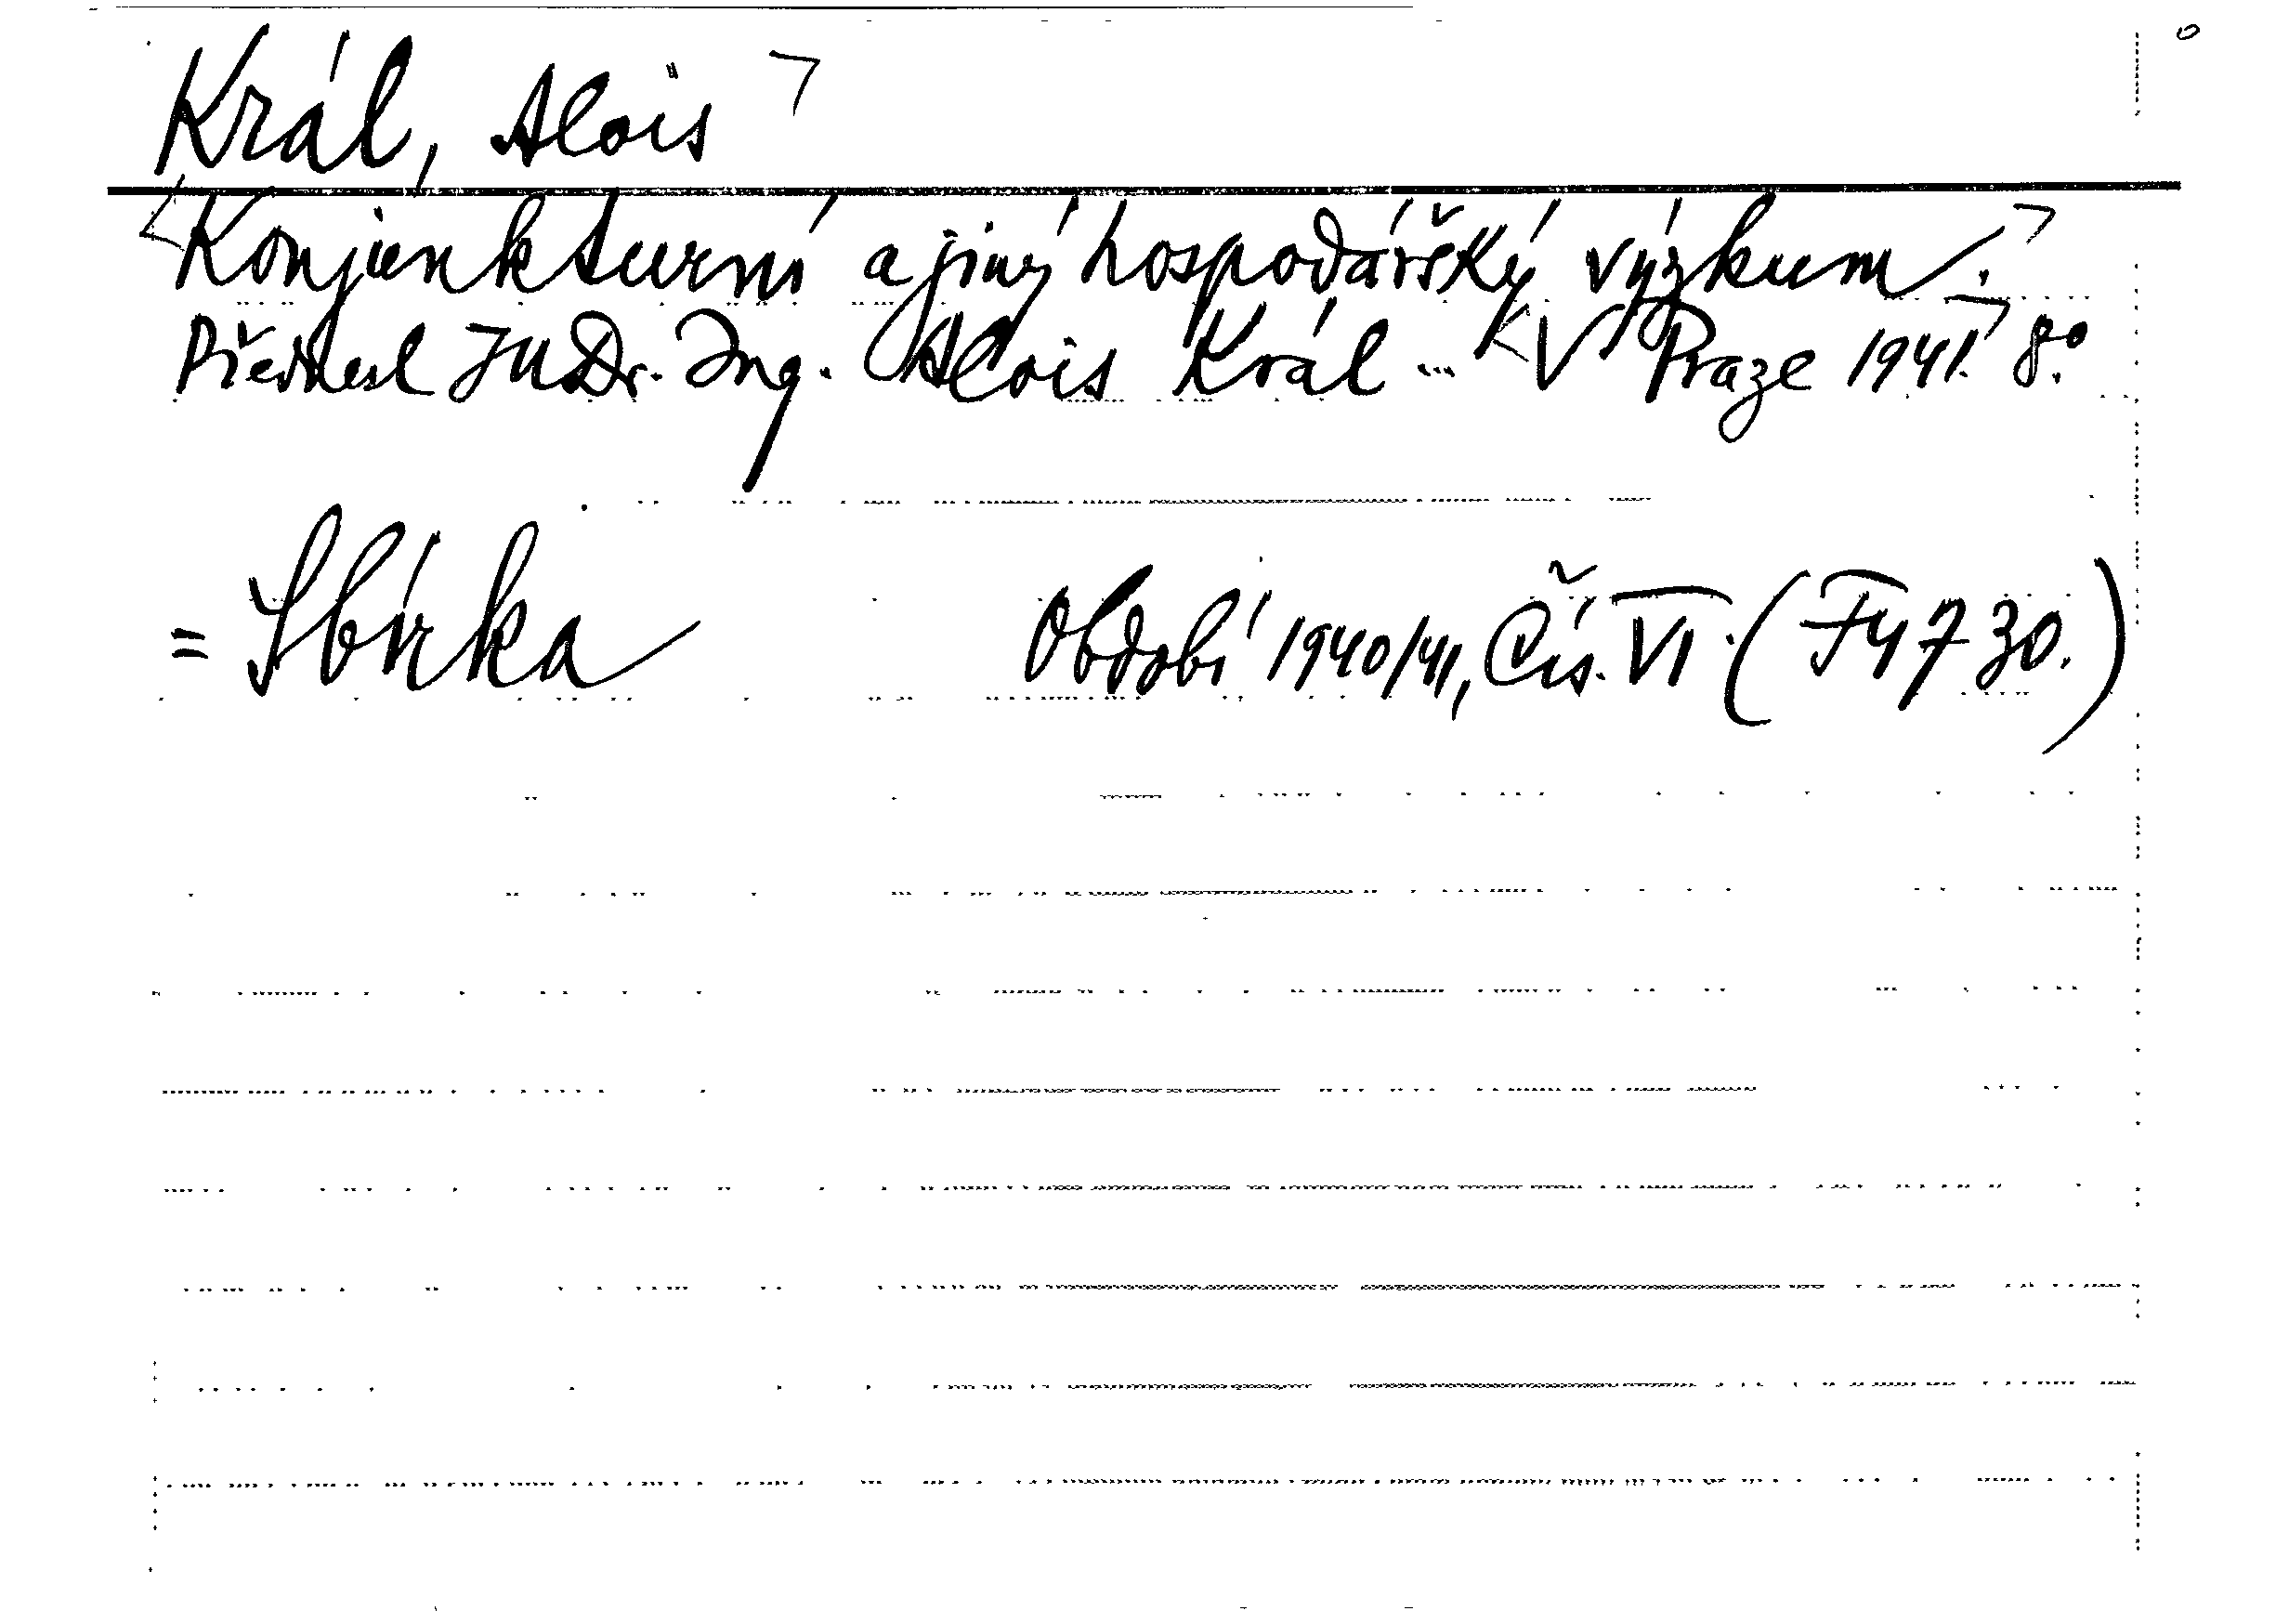 Král, Alois
Konjunkturní a jiný hospodářský výzkum.
Přednesl JUDr. Ing. Alois Král ... V Praze 1941. 8°.
= Sbírka Období 1940/41, Čís. VI. (F 4730.)